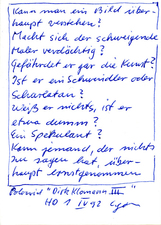 Kann man ein Bild über-
haupt verstehen?
Macht sich der schweigende
Maler verdächtig?
Gefährdet er gar die Kunst?
Ist er ein Schwindler oder
Scharlatan?
Weiß er nichts, ist er
etwa dumm?
Ein Spekulant?
Kann jemand, der nichts
zu sagen hat, über-
haupt ernstgenommen
Polemid "Dirk Klomann III"
HO 1 IV 92